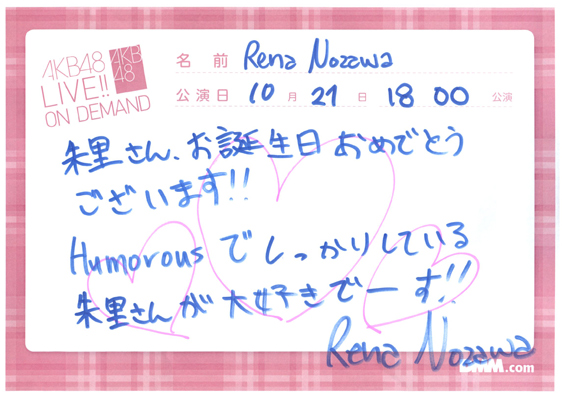 AKB48
LIVE!!
ON DEMAND
AKB
48
名前 Rena Nozawa
公演日 10月21日 18 00 公演
朱里さん、お誕生日おめでとう
ございます!!
Humorous でしっかりしている
朱里さんが大好きでーす!!
Rena Nozawa
DMM.com